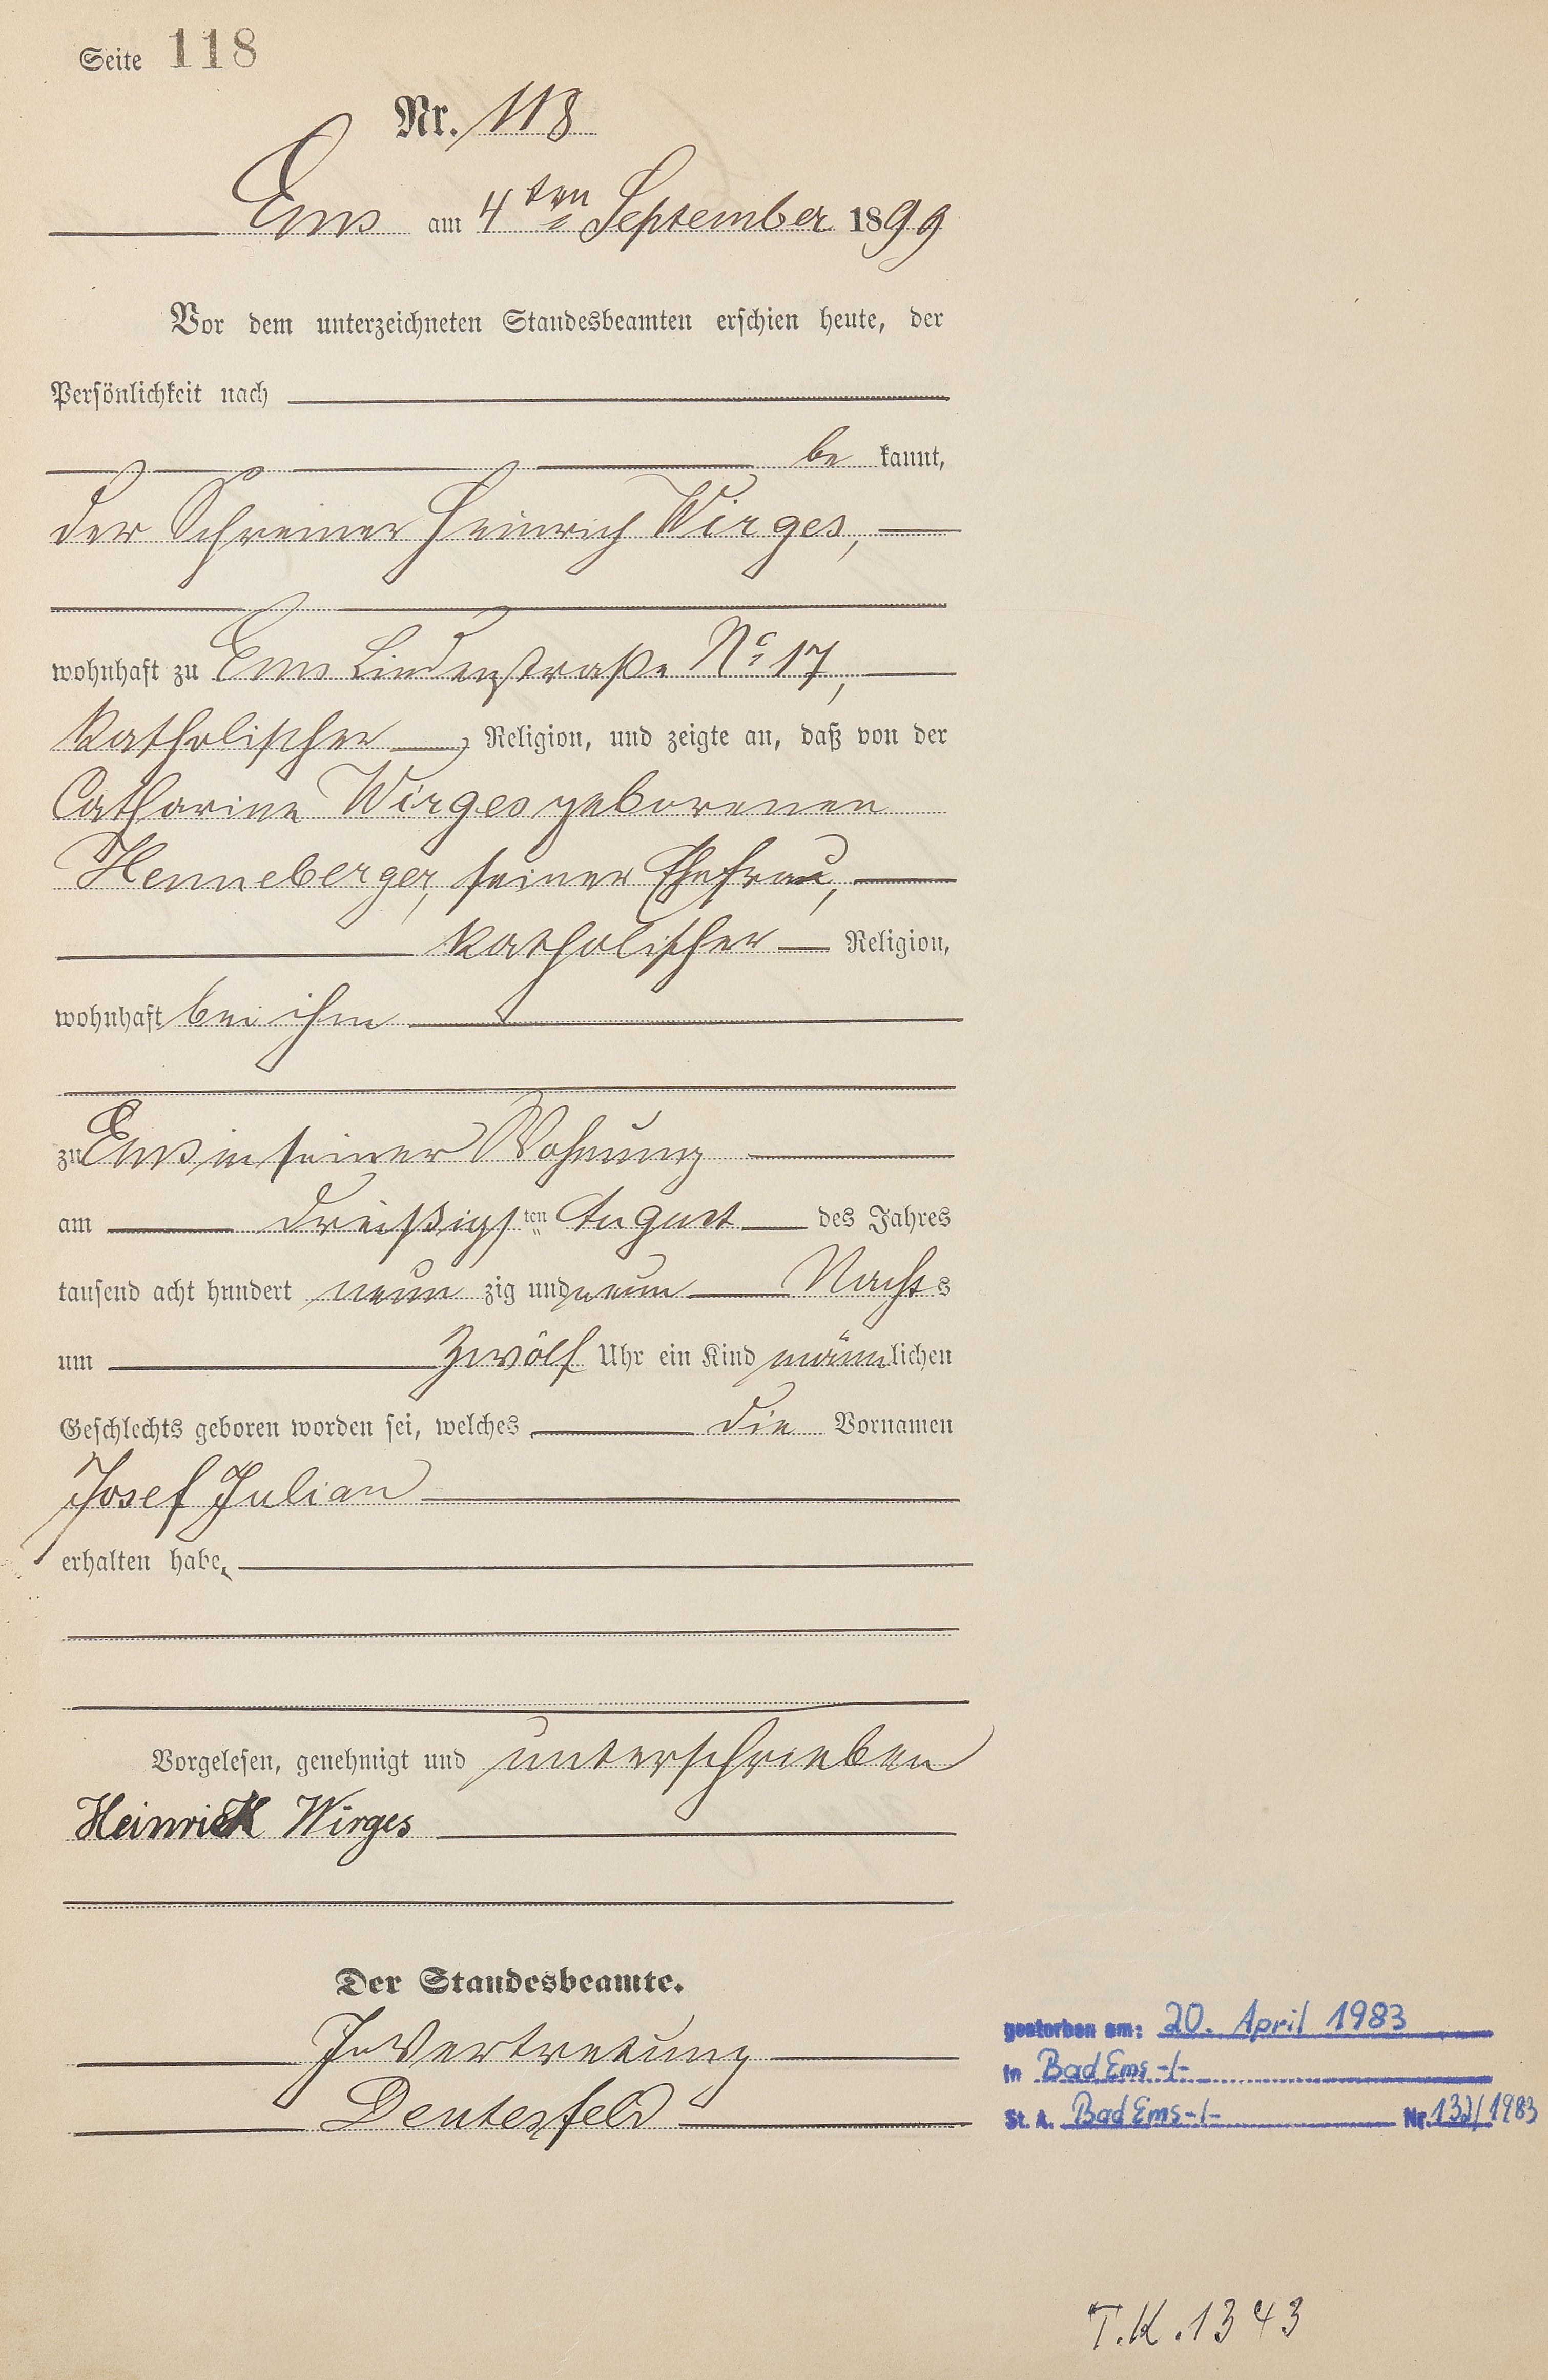 Seite 118
Nr. 118
Ems am 4ten September 1899
Vor dem unterzeichneten Standesbeamten erschien heute, der
Persönlichkeit nach
be kannt,
der Schreiner Heinrich Wirges,
wohnhaft zu Ems Lindenstraße No 17,
katholischer, Religion, und zeigte an, daß von der
Catharine Wirges geborenen
Henneberger, seiner Ehefrau,
katholischer Religion,
wohnhaft bei ihm
zu Ems in seiner Wohnung
am dreißigsten August des Jahres
tausend acht hundert neun zig und neun Nachts
um zwölf Uhr ein Kind männlichen
Geschlechts geboren worden sei, welches die Vornamen
Josef Julian
erhalten habe.
Vorgelesen, genehmigt und unterschrieben
Heinrich Wirges
Der Standesbeamte.
In Vertretung
Deutesfeld
gestorben am: 20. April 1983
in Bad Ems -/-
St. A. Bad Ems -/- Nr. 132/1983
T.K. 1343